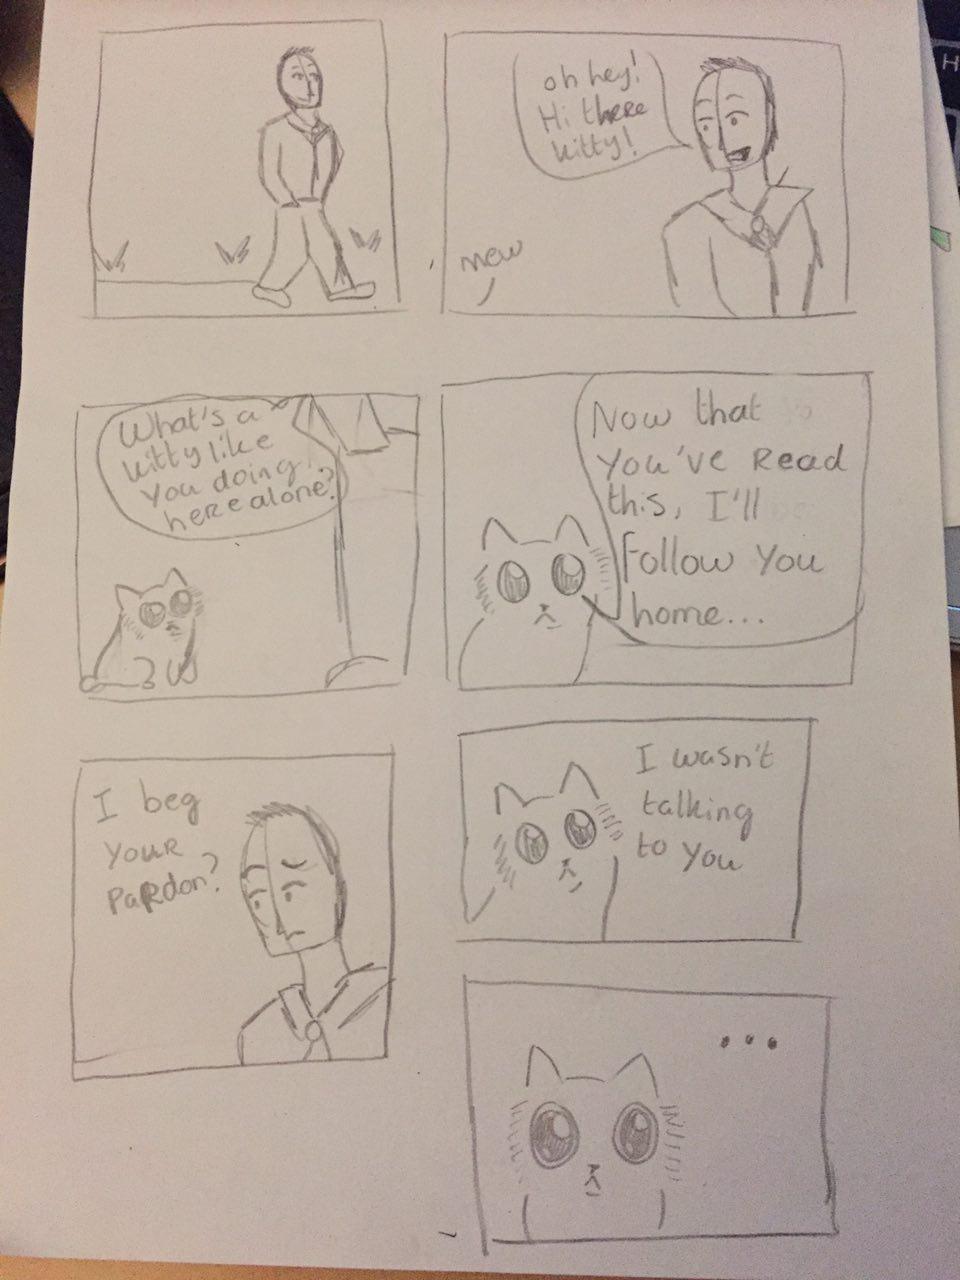 oh hey!
Hi there
kitty!
mew
What's a
kitty like
you doing
here alone?
Now that
you've read
this, I'll
follow you
home...
I beg
your
pardon?
I wasn't
talking
to you
...
H